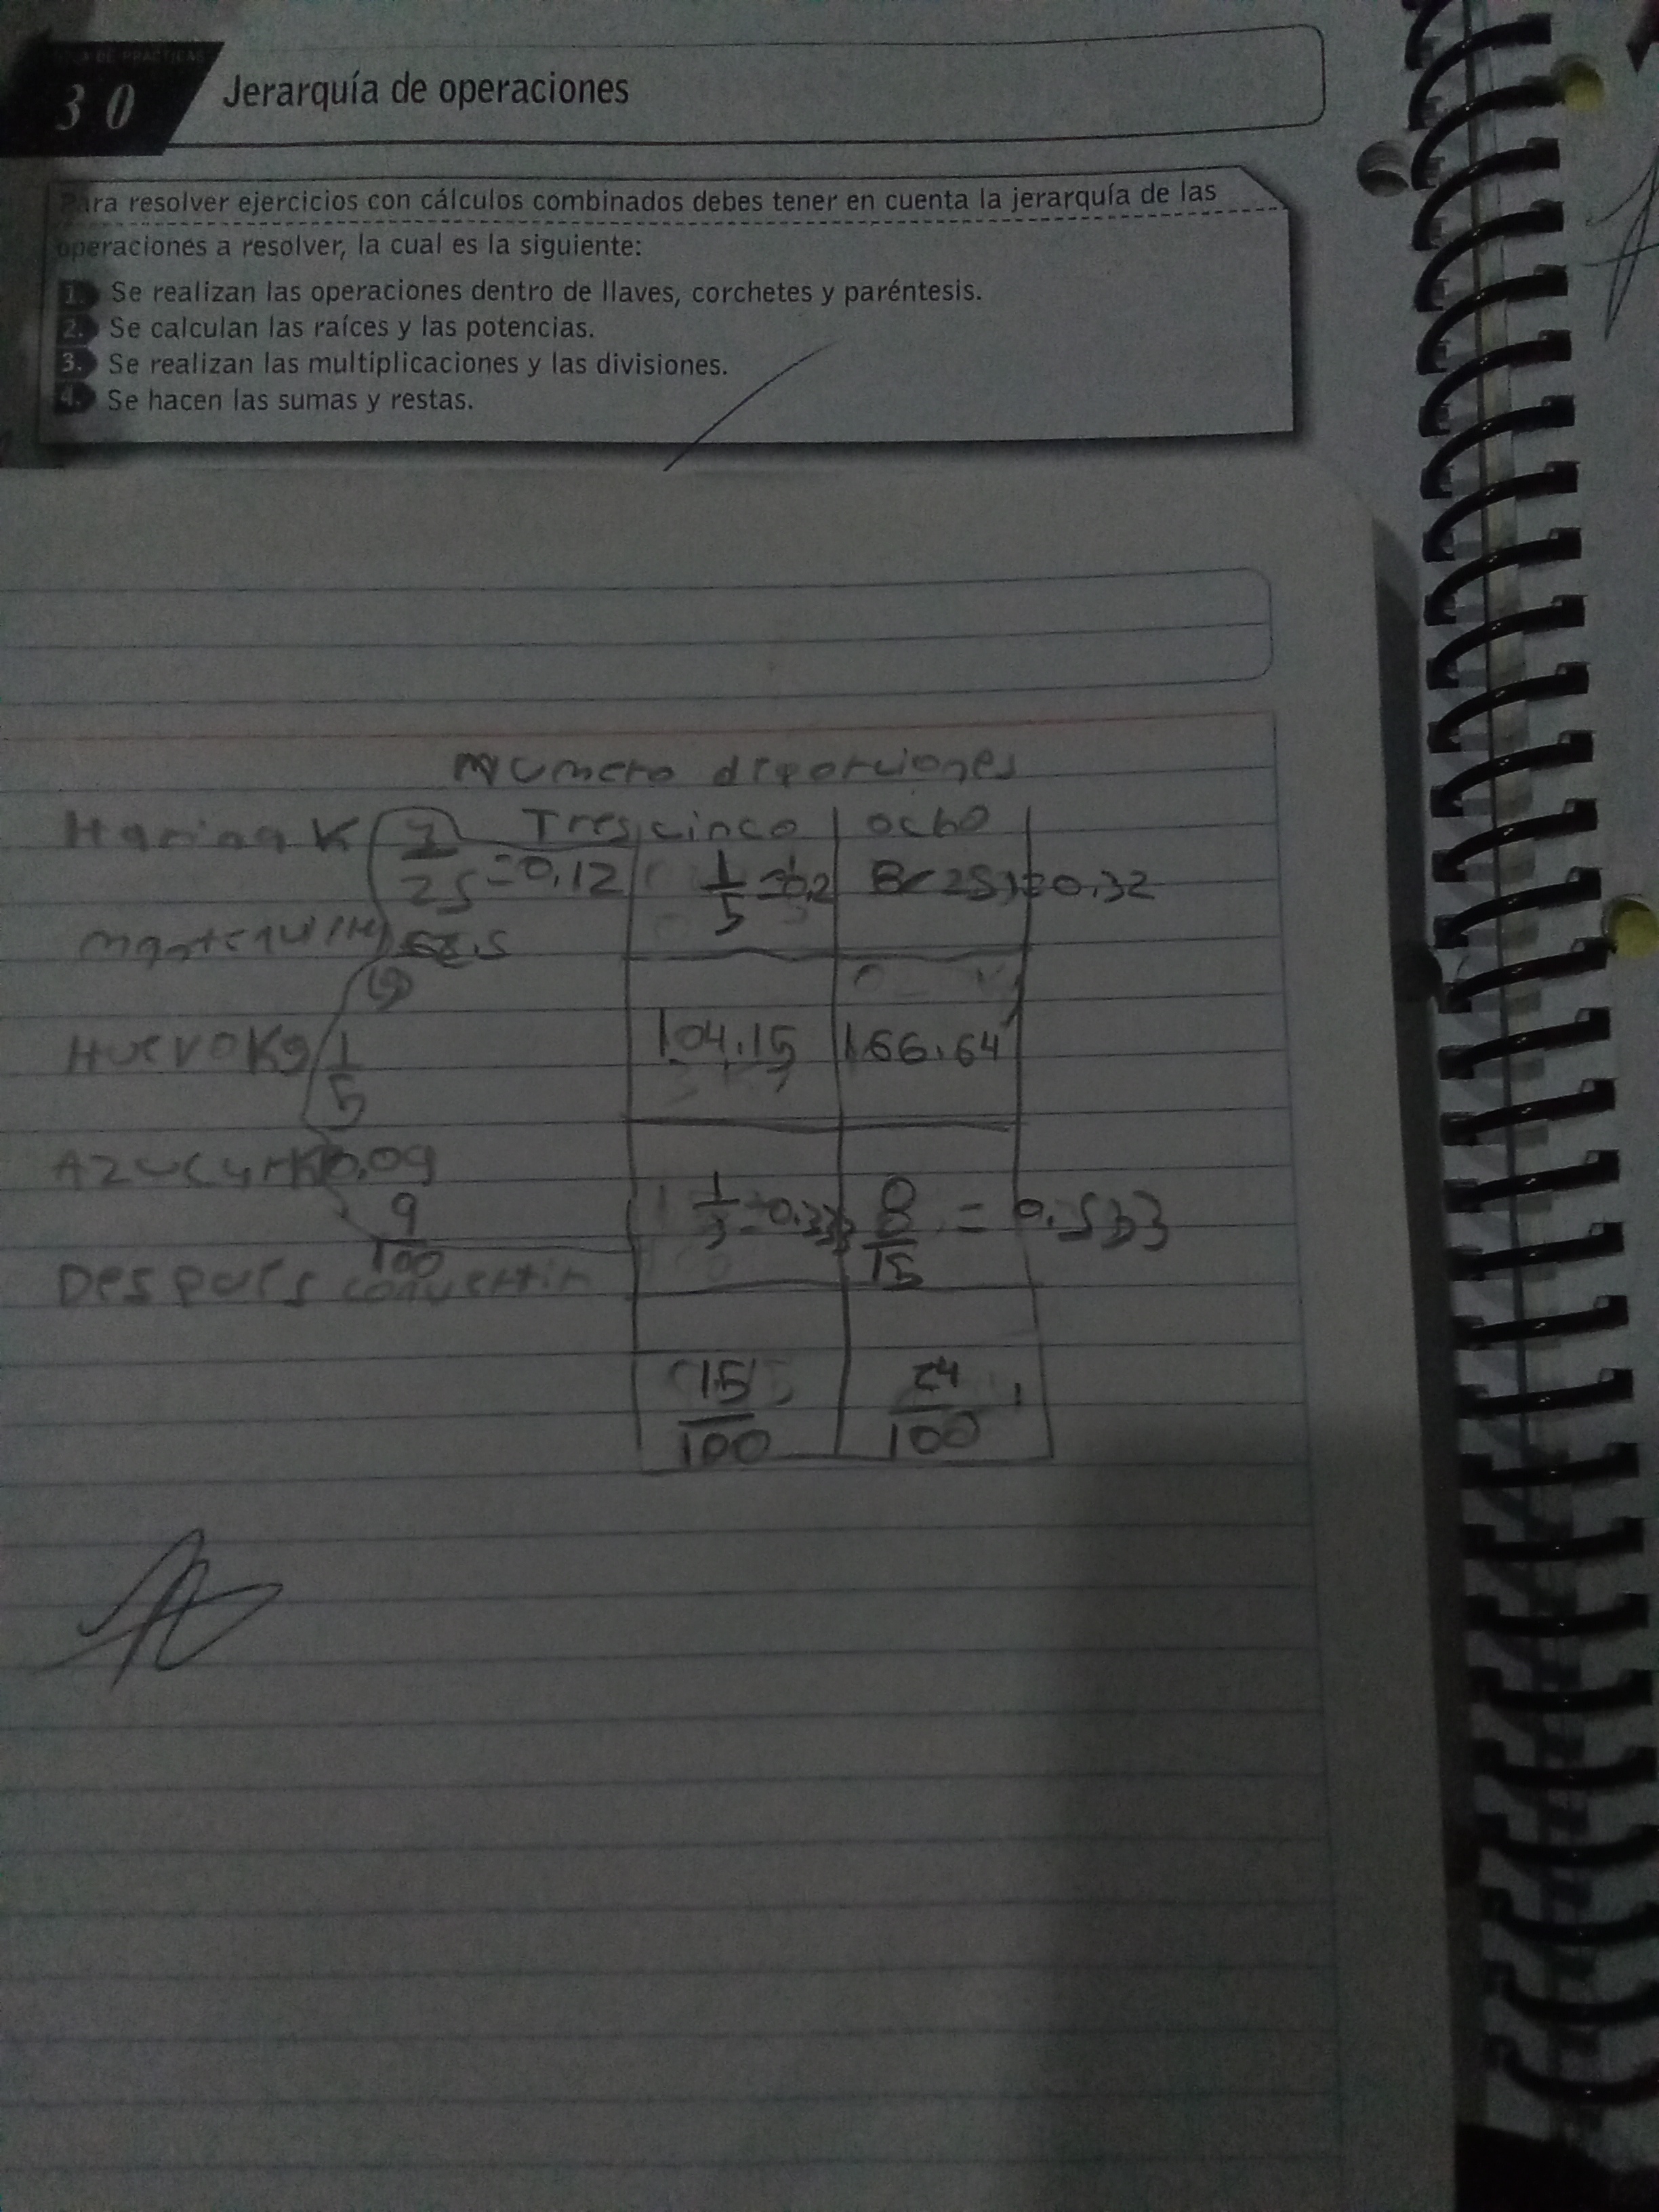 30 Jerarquía de operaciones
Para resolver ejercicios con cálculos combinados debes tener en cuenta la jerarquía de las
operaciones a resolver, la cual es la siguiente:
1. Se realizan las operaciones dentro de llaves, corchetes y paréntesis.
2. Se calculan las raíces y las potencias.
3. Se realizan las multiplicaciones y las divisiones.
4. Se hacen las sumas y restas.
Numero diporciones
Harina K Tres cinco ocho
25 =0.12 1/5 =0.2 8(25)=0.32
.5
HuevoKg 1/5 104.15 166.64
0.09
9/100 1/3=0.333 8/15 = 0.533
Despues convertir
15/100 24/100